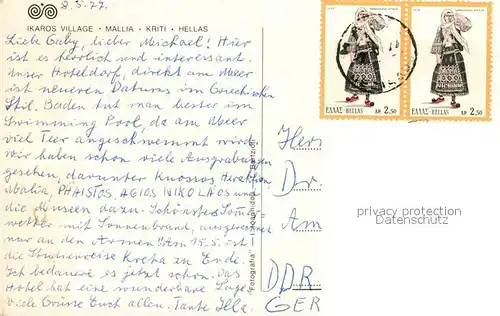 8.5.77
IKAROS VILLAGE · MALLIA · KRITI · HELLAS
Liebe Gaby, lieber Michael! Hier
ist es herrlich und interessant.
Unser Hoteldorf, direkt am Meer
ist neueren Datums im Griechischen
Stil. Baden tut man besser im
Swimming Pool, da am Meer
viel Teer angeschwemmt wird.
Wir haben schon viele Ausgrabungen
gesehen, darunter Knossos, Heraklion
Mallia, PHAISTOS, AGIOS NIKOLAOS und
die Museen dazu. Schönstes Sonnen-
wetter mit Sonnenbrand, ausgerechnet
nur an den Armen. Am 15.5. ist
die Studienreise Kreta zu Ende.
Ich bedauere es jetzt schon. Das
Hotel hat eine wunderbare Lage.
Viele Grüsse Euch allen. Tante Illa.
ΕΛΛΑΣ-HELLAS ΔΡ. 2,50
ΕΛΛΑΣ-HELLAS ΔΡ. 2,50
"Fotografia"
Her
Dr.
Am
DDR
GER
privacy protection
Datenschutz